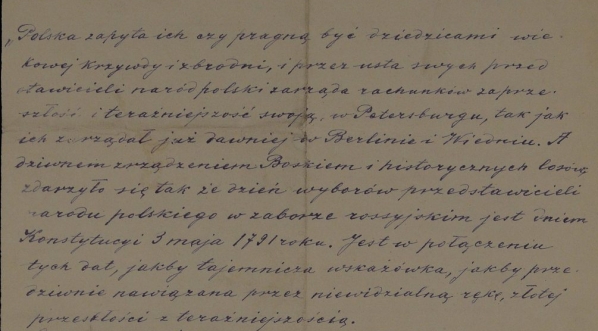 „Polska zapyta ich czy pragną być dziedzicami wie-
kowej krzywdy i zbrodni, i przez usta swych przed
stawicieli naród polski zarząda rachunków za prze-
szłość i teraźniejszość swoją, w Petersburgu, tak jak
ich zarządał już dawniej w Berlinie i Wiedniu. A
dziwnem zrządzeniem Boskiem i historycznych losów,
zdarzyło się tak że dzień wyborów przedstawicieli
narodu polskiego w zaborze rossyjskim jest dniem
Konstytucyi 3 maja 1791 roku. Jest w połączeniu
tych dat, jakby tajemnicza wskazówka, jakby prze-
dziwnie nawiązana przez niewidzialną rękę, złotej
przeszłości z teraźniejszością.